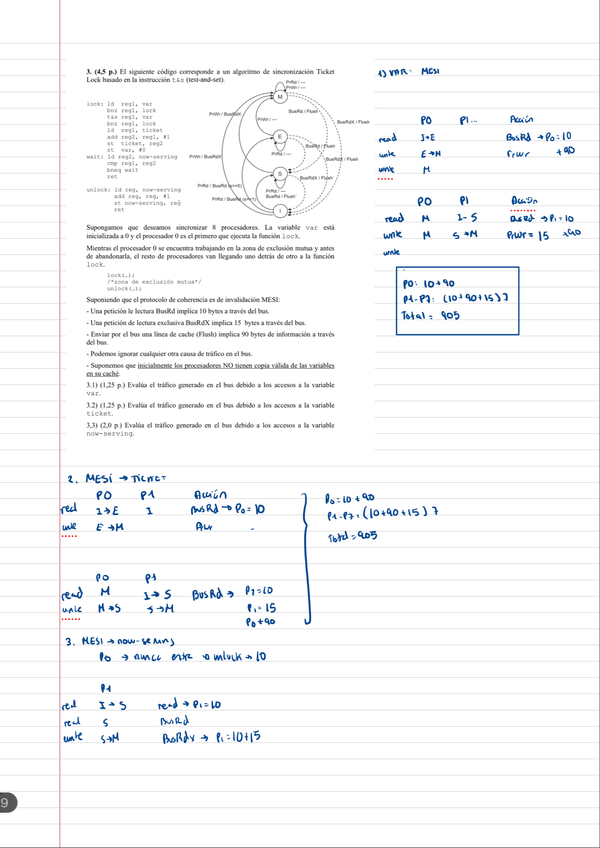 3. (4,5 p.) El siguiente código corresponde a un algoritmo de sincronización Ticket
Lock basado en la instrucción t&s (test-and-set).
lock: ld reg1, var
bnz reg1, lock
t&s reg1, var
bnz reg1, lock
ld reg1, ticket
add reg2, reg1, #1
st ticket, reg2
st var, #0
wait: ld reg2, now-serving
cmp reg1, reg2
bneq wait
ret
unlock: ld reg, now-serving
add reg, reg, #1
st now-serving, reg
ret
PrRd / —
PrWr / —
M
BusRd / Flush
PrWr / BusRdX
PrWr / —
BusRdX / Flush
E
BusRd / Flush
PrRd / —
PrWr / BusRdX
BusRdX / Flush
S
PrRd / —
BusRd / Flush
BusRdX / Flush
PrRd / BusRd (s==0)
PrRd / BusRd (s==1)
I
Supongamos que deseamos sincronizar 8 procesadores. La variable var está
inicializada a 0 y el procesador 0 es el primero que ejecuta la función lock.
Mientras el procesador 0 se encuentra trabajando en la zona de exclusión mutua y antes
de abandonarla, el resto de procesadores van llegando uno detrás de otro a la función
lock.
lock(…);
/*zona de exclusión mutua*/
unlock(…);
Suponiendo que el protocolo de coherencia es de invalidación MESI:
- Una petición le lectura BusRd implica 10 bytes a través del bus.
- Una petición de lectura exclusiva BusRdX implica 15 bytes a través del bus.
- Enviar por el bus una línea de cache (Flush) implica 90 bytes de información a través
del bus.
- Podemos ignorar cualquier otra causa de tráfico en el bus.
- Suponemos que inicialmente los procesadores NO tienen copia válida de las variables
en su caché.
3.1) (1,25 p.) Evalúa el tráfico generado en el bus debido a los accesos a la variable
var.
3.2) (1,25 p.) Evalúa el tráfico generado en el bus debido a los accesos a la variable
ticket.
3,3) (2,0 p.) Evalúa el tráfico generado en el bus debido a los accesos a la variable
now-serving.
1) VAR: MESI
P0 P1... Acción
read I→E BusRd → P0=10
write E→M Prwr +90
write M
P0 P1 Acción
read M I-S BusRd → P1=10
write M S→M Prwr = 15 +90
write
P0: 10+90
P1-P7: (10+90+15)7
Total = 905
2. MESI → TICKET
P0 P1 Acción
read I→E I BusRd → P0=10
write E→M
P0 P1
read M I→S BusRd → P1=10
write M→S S→M P1=15
P0+90
P0=10+90
P1-P7: (10+90+15)7
Total=905
3. MESI → now-serving
P0 → nunca entra unlock → 10
P1
read I→S read → P1=10
read S BusRd
write S→M BusRdx → P1=10+15
9